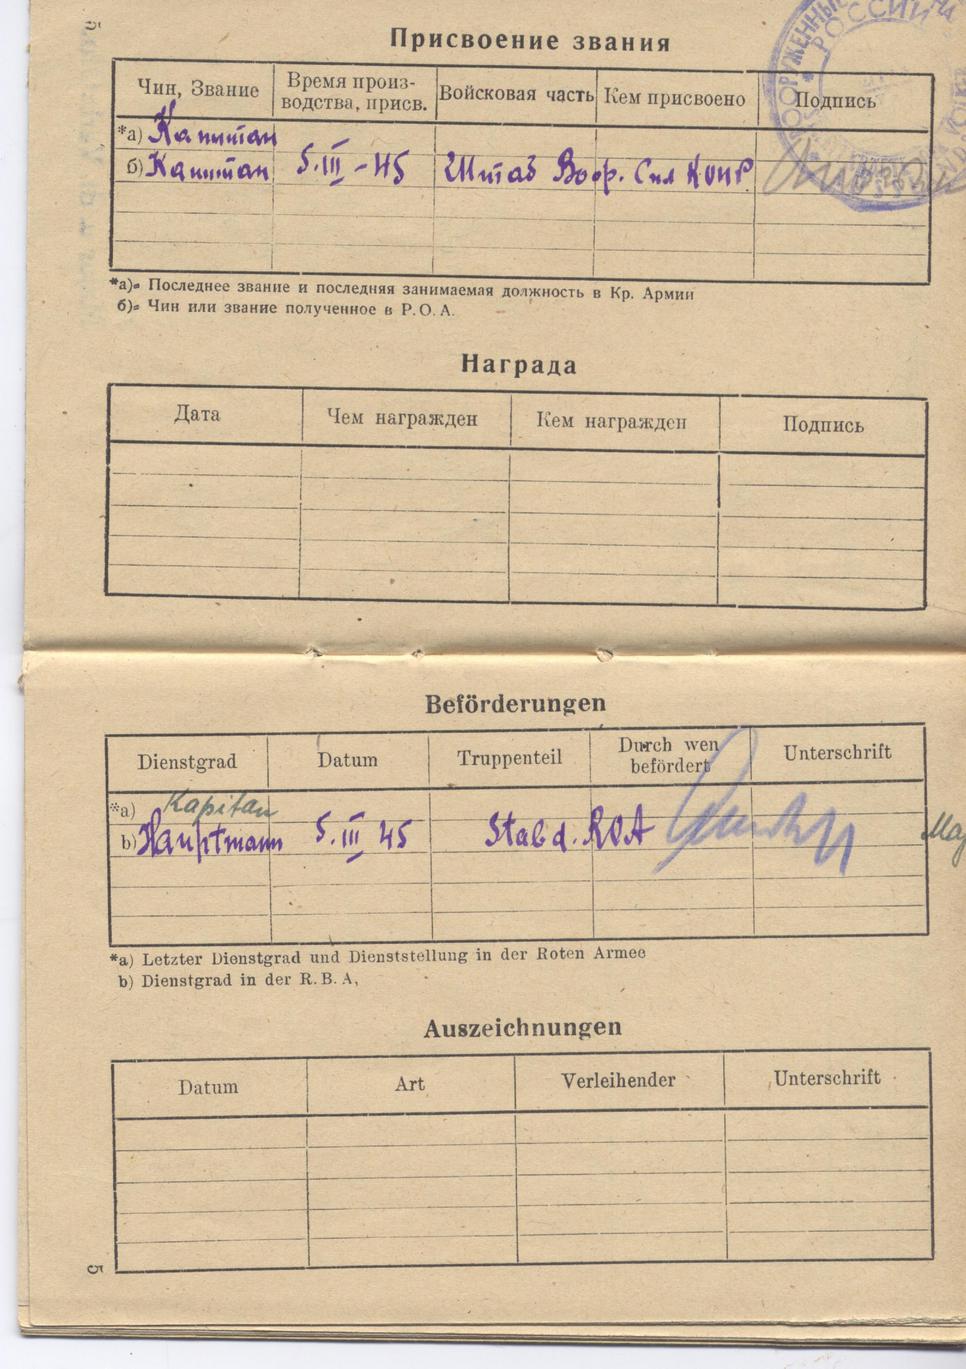 Присвоение звания
Чин, Звание
Время произ-
водства, присв.
Войсковая часть
Кем присвоено
Подпись
*а) Капитан
б) Капитан 5.III-45 Штаб Воор. Сил КОНР
*а)= Последнее звание и последняя занимаемая должность в Кр. Армии
б)= Чин или звание полученное в Р.О.А.
Награда
Дата Чем награжден Кем награжден Подпись
Beförderungen
Dienstgrad
Datum
Truppenteil
Durch wen
befördert
Unterschrift
*a) Kapitan
b) Hauptmann 5.III 45 Stab d. ROA
*a) Letzter Dienstgrad und Dienststellung in der Roten Armee
b) Dienstgrad in der R.B.A,
Auszeichnungen
Datum Art Verleihender Unterschrift
5
ВООРУЖЕННЫЕ
РОССИИ